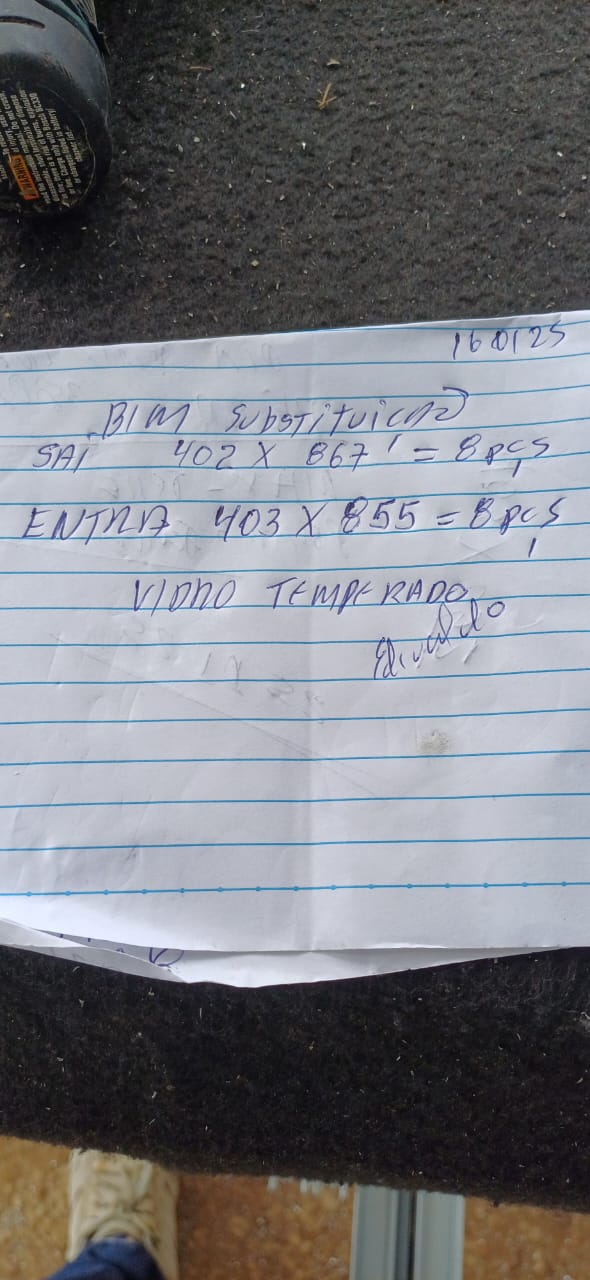 160125
BIM Substituição
SAi 402 X 867 = 8 pçs
ENTRA 403 X 855 = 8 pçs
VIDRO TEMPERADO
Edivaldo
WARNING